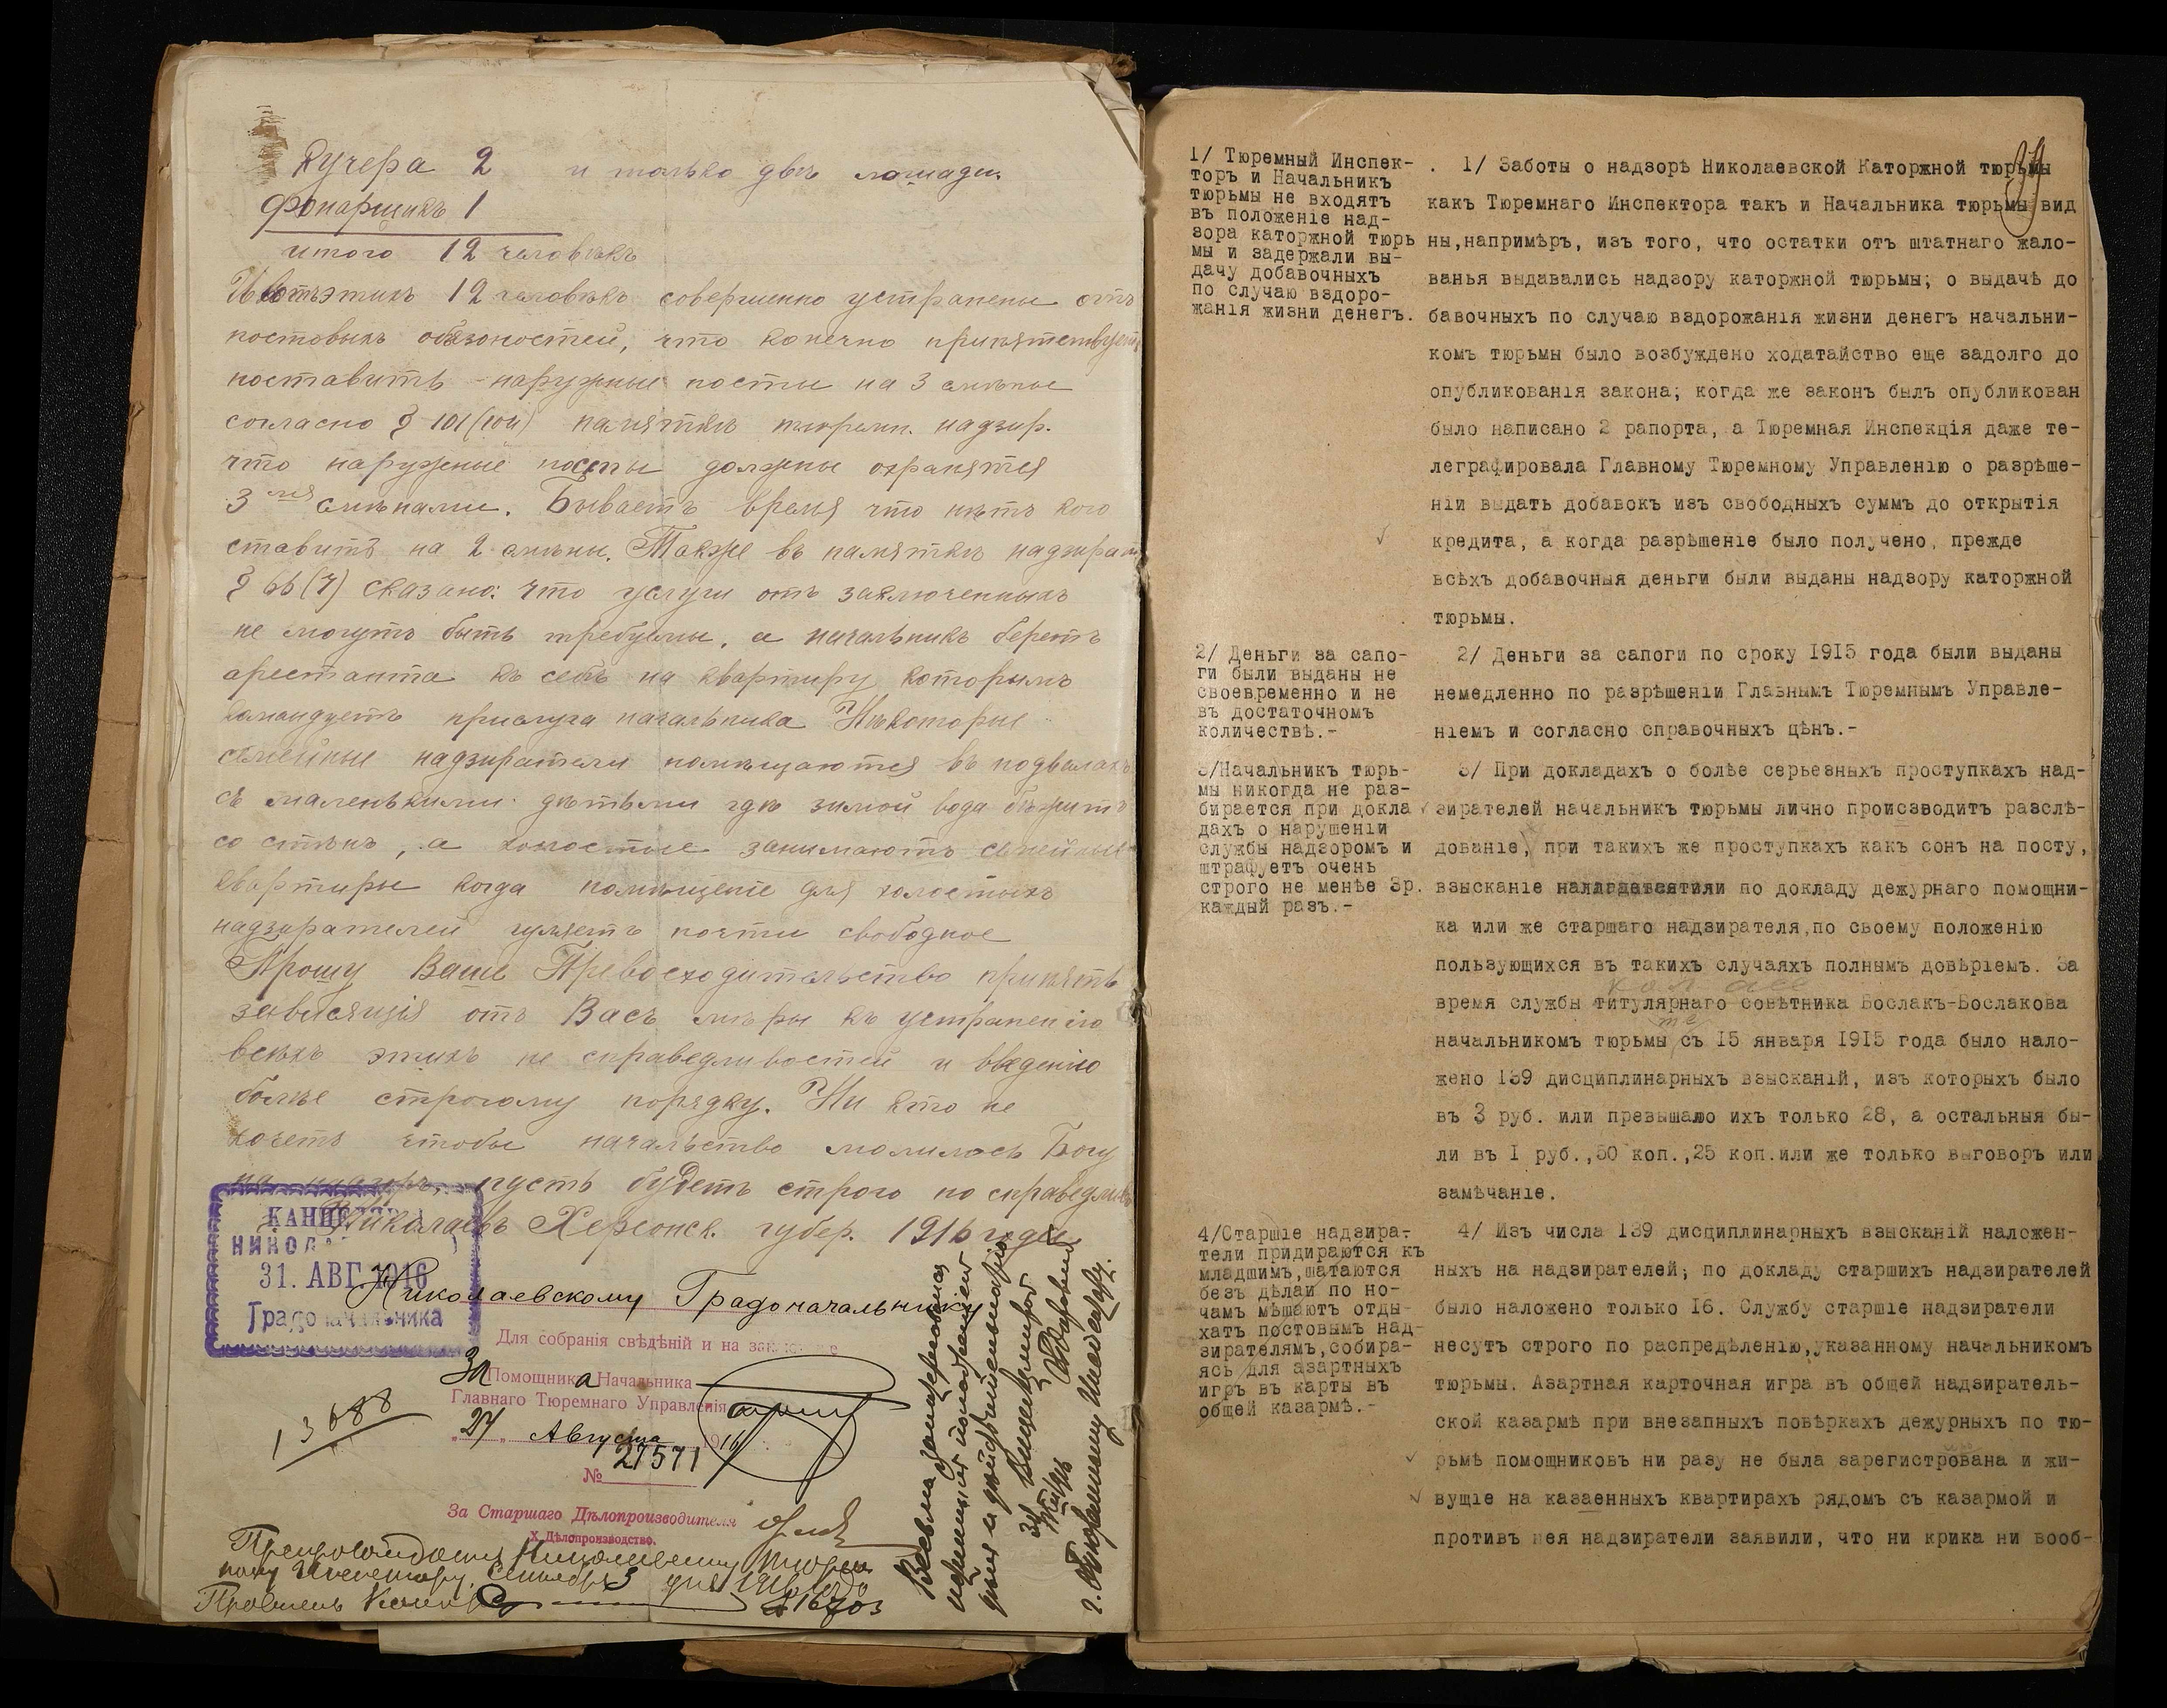 Кучера 2 и только двѣ лошади.
Фонарщикъ 1
итого 12 человѣкъ
И вотъ этихъ 12 человѣкъ совершенно устранены отъ
постовыхъ обязоностей, что конечно припятствуетъ
поставить наружные посты на 3 смѣны
согласно § 101 памяткѣ тюремн. надзир.
что наружные посты должны охранятся
3 мя смѣнами. Бываетъ время что нѣтъ кого
ставить на 2 смѣны. Также въ памяткѣ надзират
§ 66 (7) сказано: что услуги отъ заключенныхъ
не могутъ быть требуемы, а начальникъ беретъ
арестанта къ себѣ на квартиру которымъ
командуетъ прислуга начальника Нѣкоторые
семейные надзиратели помѣщаются въ подвалахъ
съ маленькими дѣтьми гдѣ зимой вода бѣжитъ
со стѣнъ, а холостые занимаютъ семейные
квартиры когда помѣщеніе для холостыхъ
надзирателей гуляетъ почти свободное
Прошу Ваше Превосходительство принять
зависящія отъ Васъ мѣры къ устраненію
всѣхъ этихъ не справедливостей и введенію
болѣе строгому порядку. Ни кто не
хочетъ чтобы начальство молилось Богу
на надзир., пусть будетъ строго но справедливо
Николаевъ Херсонск. губер. 1916 года
КАНЦЕЛЯР
НИКОЛА
31. АВГ. 1916
Градоначальника
Николаевскому Градоначальнику
Для собранія свѣдѣній и на заключеніе
За Помощника Начальника
Главнаго Тюремнаго Управленія
„27„ Августа 1916
№ 27571
13688
За Старшаго Дѣлопроизводителя
X Дѣлопроизводство.
Препровождается Николаевскому Тюрем
ному Инспектору. Сентября 3 дня 1916 года
№ 16703
Весьма заинтересованы
г. Тюремному Инспектору.
39
1/ Тюремный Инспек-
торъ и Начальникъ
тюрьмы не входятъ
въ положеніе над-
зора каторжной тюрь
мы и задержали вы-
дачу добавочныхъ
по случаю вздоро-
жанія жизни денегъ.
1/ Заботы о надзорѣ Николаевской Каторжной тюрьмы
какъ Тюремнаго Инспектора такъ и Начальника тюрьмы вид
ны,напримѣръ, изъ того, что остатки отъ штатнаго жало-
ванья выдавались надзору каторжной тюрьмы; о выдачѣ до
бавочныхъ по случаю вздорожанія жизни денегъ начальни-
комъ тюрьмы было возбуждено ходатайство еще задолго до
опубликованія закона; когда же законъ былъ опубликован
было написано 2 рапорта, а Тюремная Инспекція даже те-
леграфировала Главному Тюремному Управленію о разрѣше-
ніи выдать добавокъ изъ свободныхъ суммъ до открытія
кредита, а когда разрѣшеніе было получено, прежде
всѣхъ добавочныя деньги были выданы надзору каторжной
тюрьмы.
2/ Деньги за сапо-
ги были выданы не
своевременно и не
въ достаточномъ
количествѣ.-
2/ Деньги за сапоги по сроку 1915 года были выданы
немедленно по разрѣшеніи Главнымъ Тюремнымъ Управле-
ніемъ и согласно справочныхъ цѣнъ.-
3/Начальникъ тюрь-
мы никогда не раз-
бирается при докла
дахъ о нарушеніи
службы надзоромъ и
штрафуетъ очень
строго не менѣе 3р.
каждый разъ.-
3/ При докладахъ о болѣе серьезныхъ проступкахъ над-
зирателей начальникъ тюрьмы лично происзводитъ разслѣ-
дованіе, при такихъ же проступкахъ какъ сонъ на посту,
взысканіе по докладу дежурнаго помощни-
ка или же старшаго надзирателя,по своему положенію
пользующихся въ такихъ случаяхъ полнымъ довѣріемъ. За
кол. асс
время службы титулярнаго совѣтника Бослакъ-Бослакова
начальникомъ тюрьмы съ 15 января 1915 года было нало-
жено 139 дисциплинарныхъ взысканій, изъ которыхъ было
въ 3 руб. или превышало ихъ только 28, а остальныя бы-
ли въ I руб.,50 коп.,25 коп.или же только выговоръ или
замѣчаніе.
4/Старшіе надзира-
тели придираются къ
младшимъ,шатаются
безъ дѣлаи по но-
чамъ мѣшаютъ отды-
хать постовымъ над-
зирателямъ,собира-
ясь для азартныхъ
игръ въ карты въ
общей казармѣ.-
4/ Изъ числа 139 дисциплинарныхъ взысканій наложен-
ныхъ на надзирателей; по докладу старшихъ надзирателей
было наложено только I6. Службу старшіе надзиратели
несутъ строго по распредѣленію,указанному начальникомъ
тюрьмы. Азартная карточная игра въ общей надзиратель-
ской казармѣ при внезапныхъ повѣркахъ дежурныхъ по тю-
рьмѣ помощниковъ ни разу не была зарегистрована и жи-
вущіе на казаенныхъ квартирахъ рядомъ съ казармой и
противъ нея надзиратели заявили, что ни крика ни вооб-